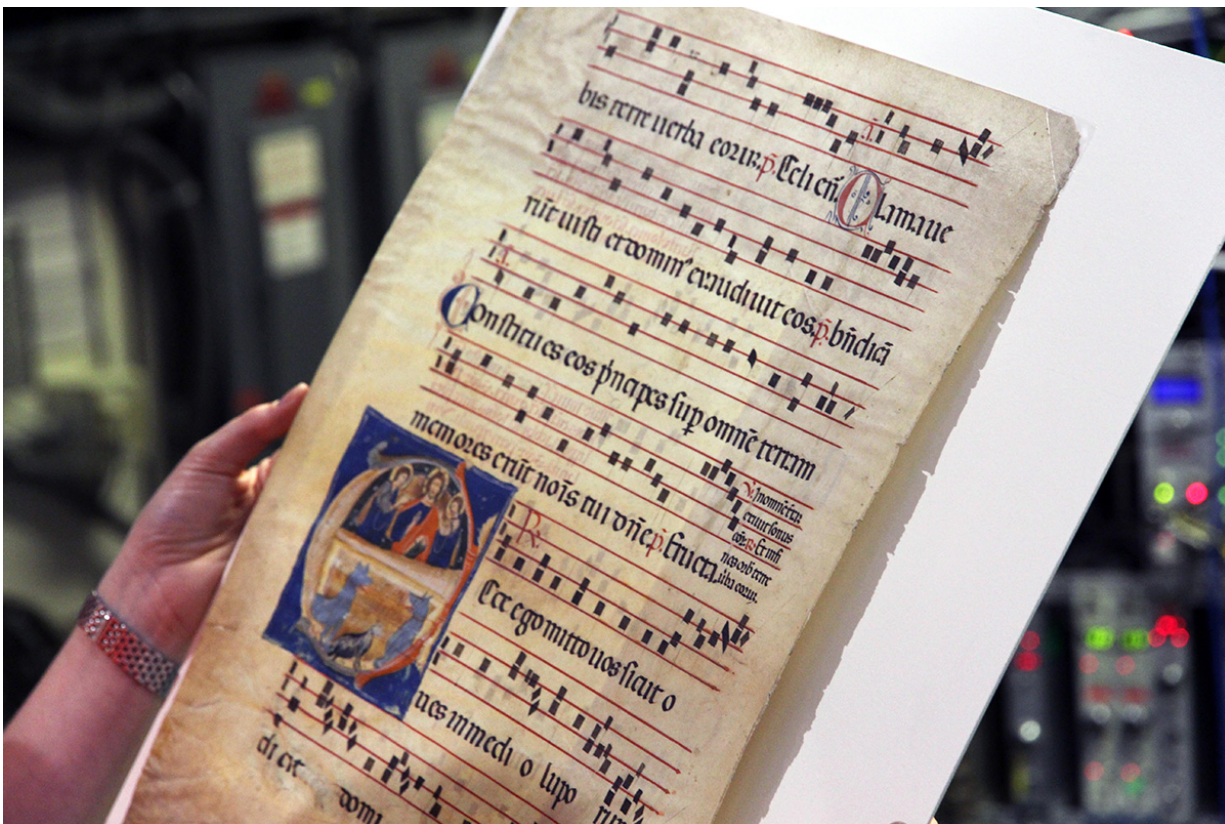 bis terre uerba eorum. p̄. Celi en̄. Clamaue
rūt iusti et domin᷒ exaudiuit eos. p̄. bn̄dicā
Constitues eos p̄ncipes sup omnē terram
memores erūt nōis tui dn̄e. p̄. Eructa.
V. In omnē ter
ram exiuit sonus
eoꝝ. R. Et in fi
nes orb terre
uba eorum.
R.
Ecce ego mitto uos sicut o
ues in medi o lupo
rum
di cit domi